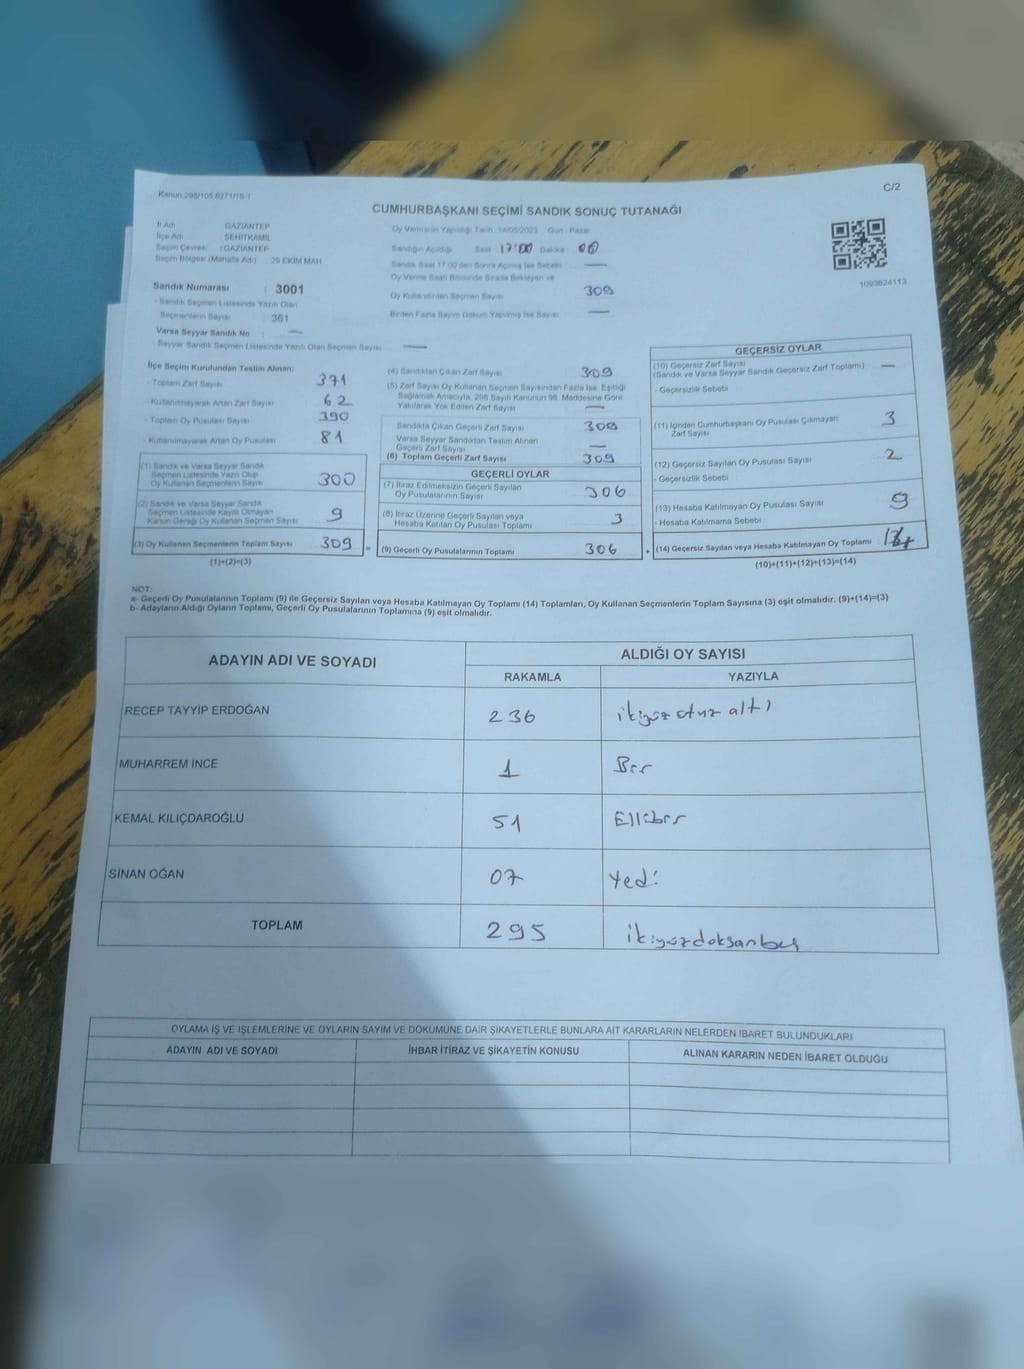 Kanun 298/105 6271/18-1
C/2
CUMHURBAŞKANI SEÇİMİ SANDIK SONUÇ TUTANAĞI
İl Adı GAZİANTEP
İlçe Adı ŞEHİTKAMİL
Seçim Çevresi : GAZİANTEP
Seçim Bölgesi (Mahalle Adı) : 29 EKİM MAH
Oy Vermenin Yapıldığı Tarih 14/05/2023 Gün Pazar
Sandığın Açıldığı Saat 17:00 Dakika 00
Sandık Saat 17:00'den Sonra Açılmış İse Sebebi —
Oy Verme Saati Bitiminde Sırada Bekleyen ve
Oy Kullandırılan Seçmen Sayısı 309
Birden Fazla Sayım Döküm Yapılmış İse Sayısı —
1093624113
Sandık Numarası : 3001
- Sandık Seçmen Listesinde Yazılı Olan
Seçmenlerin Sayısı 361
Varsa Seyyar Sandık No : —
- Seyyar Sandık Seçmen Listesinde Yazılı Olan Seçmen Sayısı —
İlçe Seçim Kurulundan Teslim Alınan:
- Toplam Zarf Sayısı 371
- Kullanılmayarak Artan Zarf Sayısı 62
- Toplam Oy Pusulası Sayısı 390
- Kullanılmayarak Artan Oy Pusulası 81
(1) Sandık ve Varsa Seyyar Sandık
Seçmen Listesinde Yazılı Olup
Oy Kullanan Seçmenlerin Sayısı 300
(2) Sandık ve Varsa Seyyar Sandık
Seçmen Listesinde Kayıtlı Olmayan
Kanun Gereği Oy Kullanan Seçmen Sayısı 9
(3) Oy Kullanan Seçmenlerin Toplam Sayısı 309 =
(1)+(2)=(3)
(4) Sandıktan Çıkan Zarf Sayısı 309
(5) Zarf Sayısı Oy Kullanan Seçmen Sayısından Fazla İse, Eşitliği
Sağlamak Amacıyla, 298 Sayılı Kanunun 98. Maddesine Göre
Yakılarak Yok Edilen Zarf Sayısı —
Sandıkta Çıkan Geçerli Zarf Sayısı 309
Varsa Seyyar Sandıktan Teslim Alınan
Geçerli Zarf Sayısı —
(6) Toplam Geçerli Zarf Sayısı 309
GEÇERLİ OYLAR
(7) İtiraz Edilmeksizin Geçerli Sayılan
Oy Pusulalarının Sayısı 306
(8) İtiraz Üzerine Geçerli Sayılan veya
Hesaba Katılan Oy Pusulası Toplamı 3
(9) Geçerli Oy Pusulalarının Toplamı 306 +
GEÇERSİZ OYLAR
(10) Geçersiz Zarf Sayısı
(Sandık ve Varsa Seyyar Sandık Geçersiz Zarf Toplamı) —
- Geçersizlik Sebebi
(11) İçinden Cumhurbaşkanı Oy Pusulası Çıkmayan
Zarf Sayısı 3
(12) Geçersiz Sayılan Oy Pusulası Sayısı 2
- Geçersizlik Sebebi
(13) Hesaba Katılmayan Oy Pusulası Sayısı 9
- Hesaba Katılmama Sebebi :
(14) Geçersiz Sayılan veya Hesaba Katılmayan Oy Toplamı
(10)+(11)+(12)+(13)=(14)
NOT:
a- Geçerli Oy Pusulalarının Toplamı (9) ile Geçersiz Sayılan veya Hesaba Katılmayan Oy Toplamı (14) Toplamları, Oy Kullanan Seçmenlerin Toplam Sayısına (3) eşit olmalıdır. (9)+(14)=(3)
b- Adayların Aldığı Oyların Toplamı, Geçerli Oy Pusulalarının Toplamına (9) eşit olmalıdır.
ADAYIN ADI VE SOYADI
ALDIĞI OY SAYISI
RAKAMLA YAZIYLA
RECEP TAYYİP ERDOĞAN 236 ikiyüz otuz altı
MUHARREM İNCE 1 Bir
KEMAL KILIÇDAROĞLU 51 Ellibir
SİNAN OĞAN 07 Yedi
TOPLAM 295 ikiyüzdoksanbeş
OYLAMA İŞ VE İŞLEMLERİNE VE OYLARIN SAYIM VE DÖKÜMÜNE DAİR ŞİKAYETLERLE BUNLARA AİT KARARLARIN NELERDEN İBARET BULUNDUKLARI
ADAYIN ADI VE SOYADI İHBAR İTİRAZ VE ŞİKAYETİN KONUSU ALINAN KARARIN NEDEN İBARET OLDUĞU